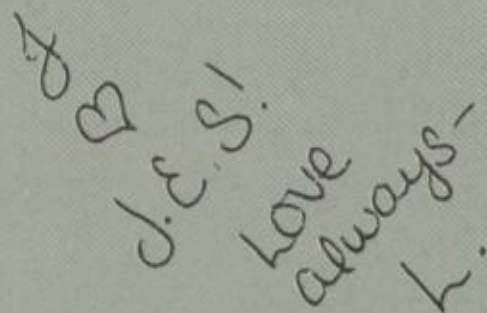 I
♡
J.E.S!
Love
always-
L.